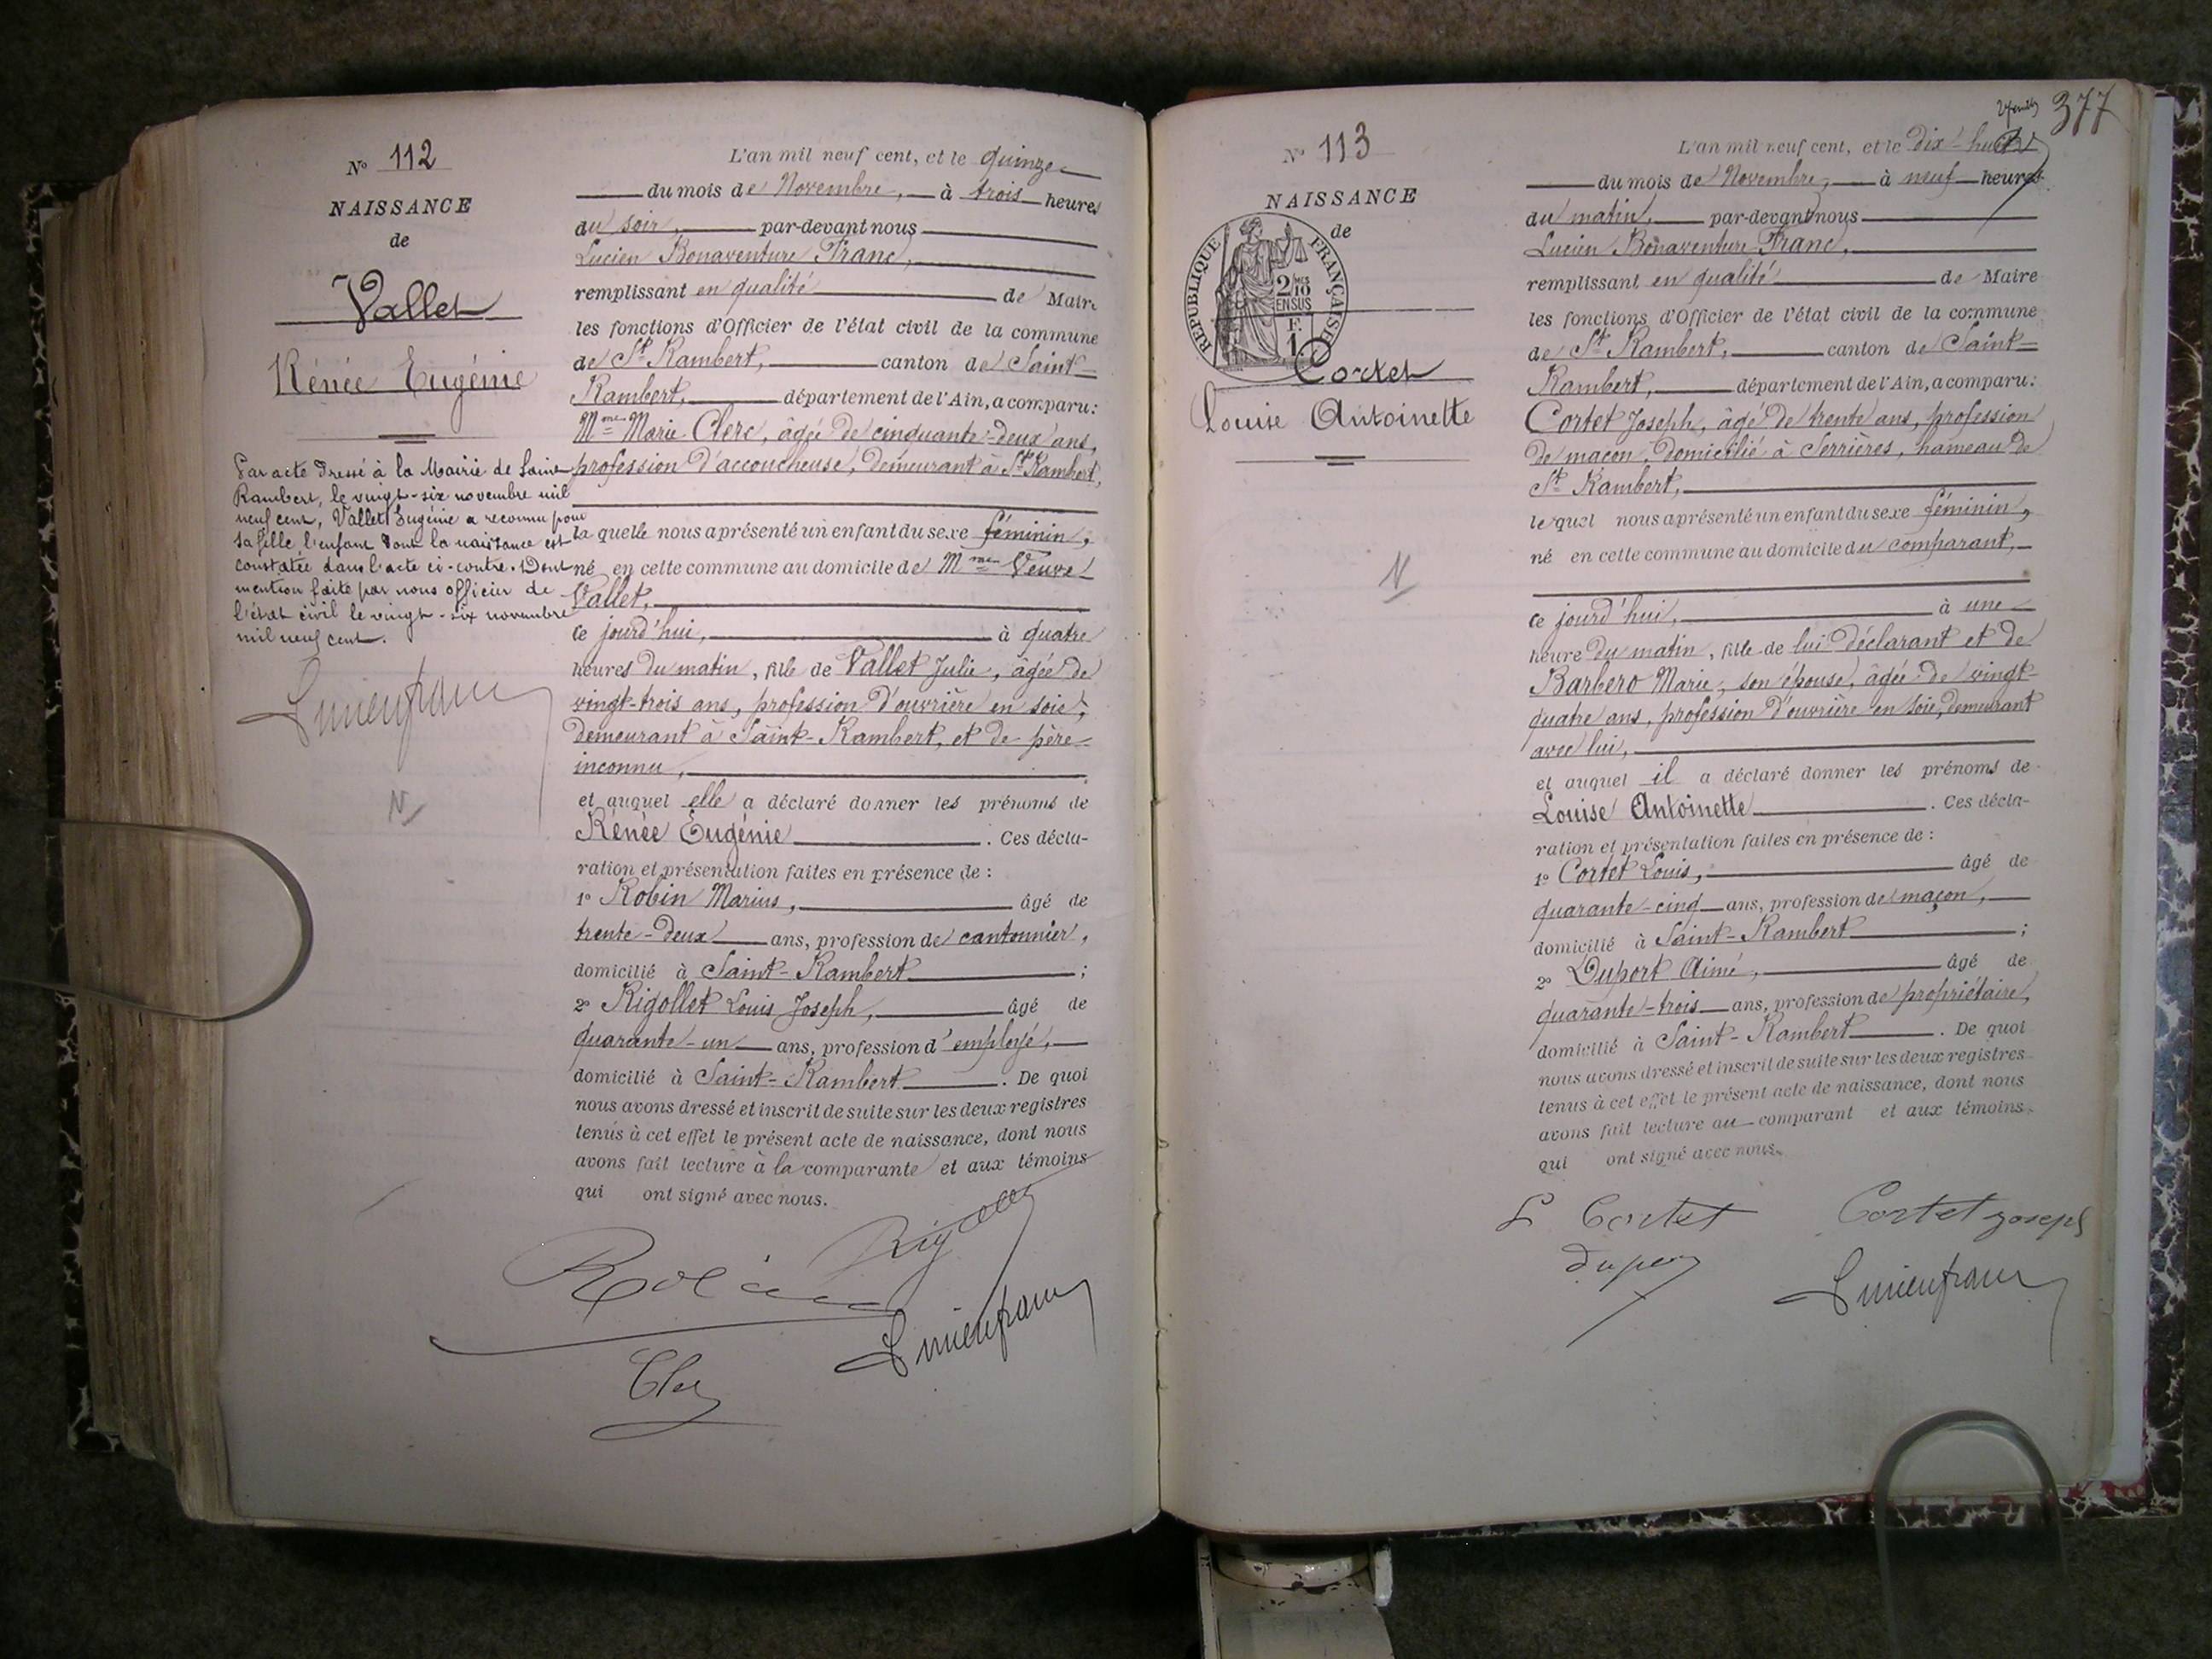 N° 112
NAISSANCE
de
Vallet
Rénée Eugénie
Par acte dressé à la Mairie de Saint
Rambert, le vingt-six novembre mil
neuf cent, Vallet Eugénie a reconnu pour
sa fille l'enfant dont la naissance est
constatée dans l'acte ci-contre. Dont
mention faite par nous officier de
l'état civil le vingt-six novembre
mil neuf cent.
Lucien franc
N
L'an mil neuf cent, et le quinze
du mois de Novembre, à trois heures
du soir, par-devant nous
Lucien Bonaventure Franc,
remplissant en qualité de Maire
les fonctions d'Officier de l'état civil de la commune
de St Rambert, canton de Saint-
Rambert, département de l'Ain, a comparu:
Mme Marie Clerc, âgée de cinquante-deux ans,
profession d'accoucheuse, demeurant à St Rambert,
la quelle nous a présenté un enfant du sexe féminin,
né en cette commune au domicile de Mme Veuve
Vallet,
ce jourd'hui, à quatre
heures du matin, fille de Vallet Julie, âgée de
vingt-trois ans, profession d'ouvrière en soie,
demeurant à Saint-Rambert, et de père
inconnu,
et auquel elle a déclaré donner les prénoms de
Rénée Eugénie. Ces décla-
ration et présentation faites en présence de :
1° Robin Marius, âgé de
trente-deux ans, profession de cantonnier,
domicilié à Saint-Rambert ;
2° Rigollet Louis Joseph, âgé de
quarante-un ans, profession d'employé,
domicilié à Saint-Rambert. De quoi
nous avons dressé et inscrit de suite sur les deux registres
tenus à cet effet le présent acte de naissance, dont nous
avons fait lecture à la comparante et aux témoins
qui ont signé avec nous.
Robin
Lucien franc
377
N° 113
NAISSANCE
de
RÉPUBLIQUE FRANÇAISE
2/10 MES
EN SUS
F.
1.
Cortet
Louise Antoinette
N
L'an mil neuf cent, et le dix-huit
du mois de Novembre, à neuf heures
du matin, par-devant nous
Lucien Bonaventure Franc,
remplissant en qualité de Maire
les fonctions d'Officier de l'état civil de la commune
de St Rambert, canton de Saint-
Rambert, département de l'Ain, a comparu:
Cortet Joseph, âgé de trente ans, profession
de maçon, domicilié à Serrières, hameau de
St Rambert,
lequel nous a présenté un enfant du sexe féminin,
né en cette commune au domicile du comparant,
ce jourd'hui, à une
heure du matin, fille de lui déclarant et de
Barbero Marie, son épouse, âgée de vingt-
quatre ans, profession d'ouvrière en soie, demeurant
avec lui,
et auquel il a déclaré donner les prénoms de
Louise Antoinette. Ces décla-
ration et présentation faites en présence de :
1° Cortet Louis, âgé de
quarante-cinq ans, profession de maçon,
domicilié à Saint-Rambert ;
2° Duport Aimé, âgé de
quarante-trois ans, profession de propriétaire,
domicilié à Saint-Rambert. De quoi
nous avons dressé et inscrit de suite sur les deux registres
tenus à cet effet le présent acte de naissance, dont nous
avons fait lecture au comparant et aux témoins
qui ont signé avec nous.
L Cortet Cortet Joseph
Lucien franc